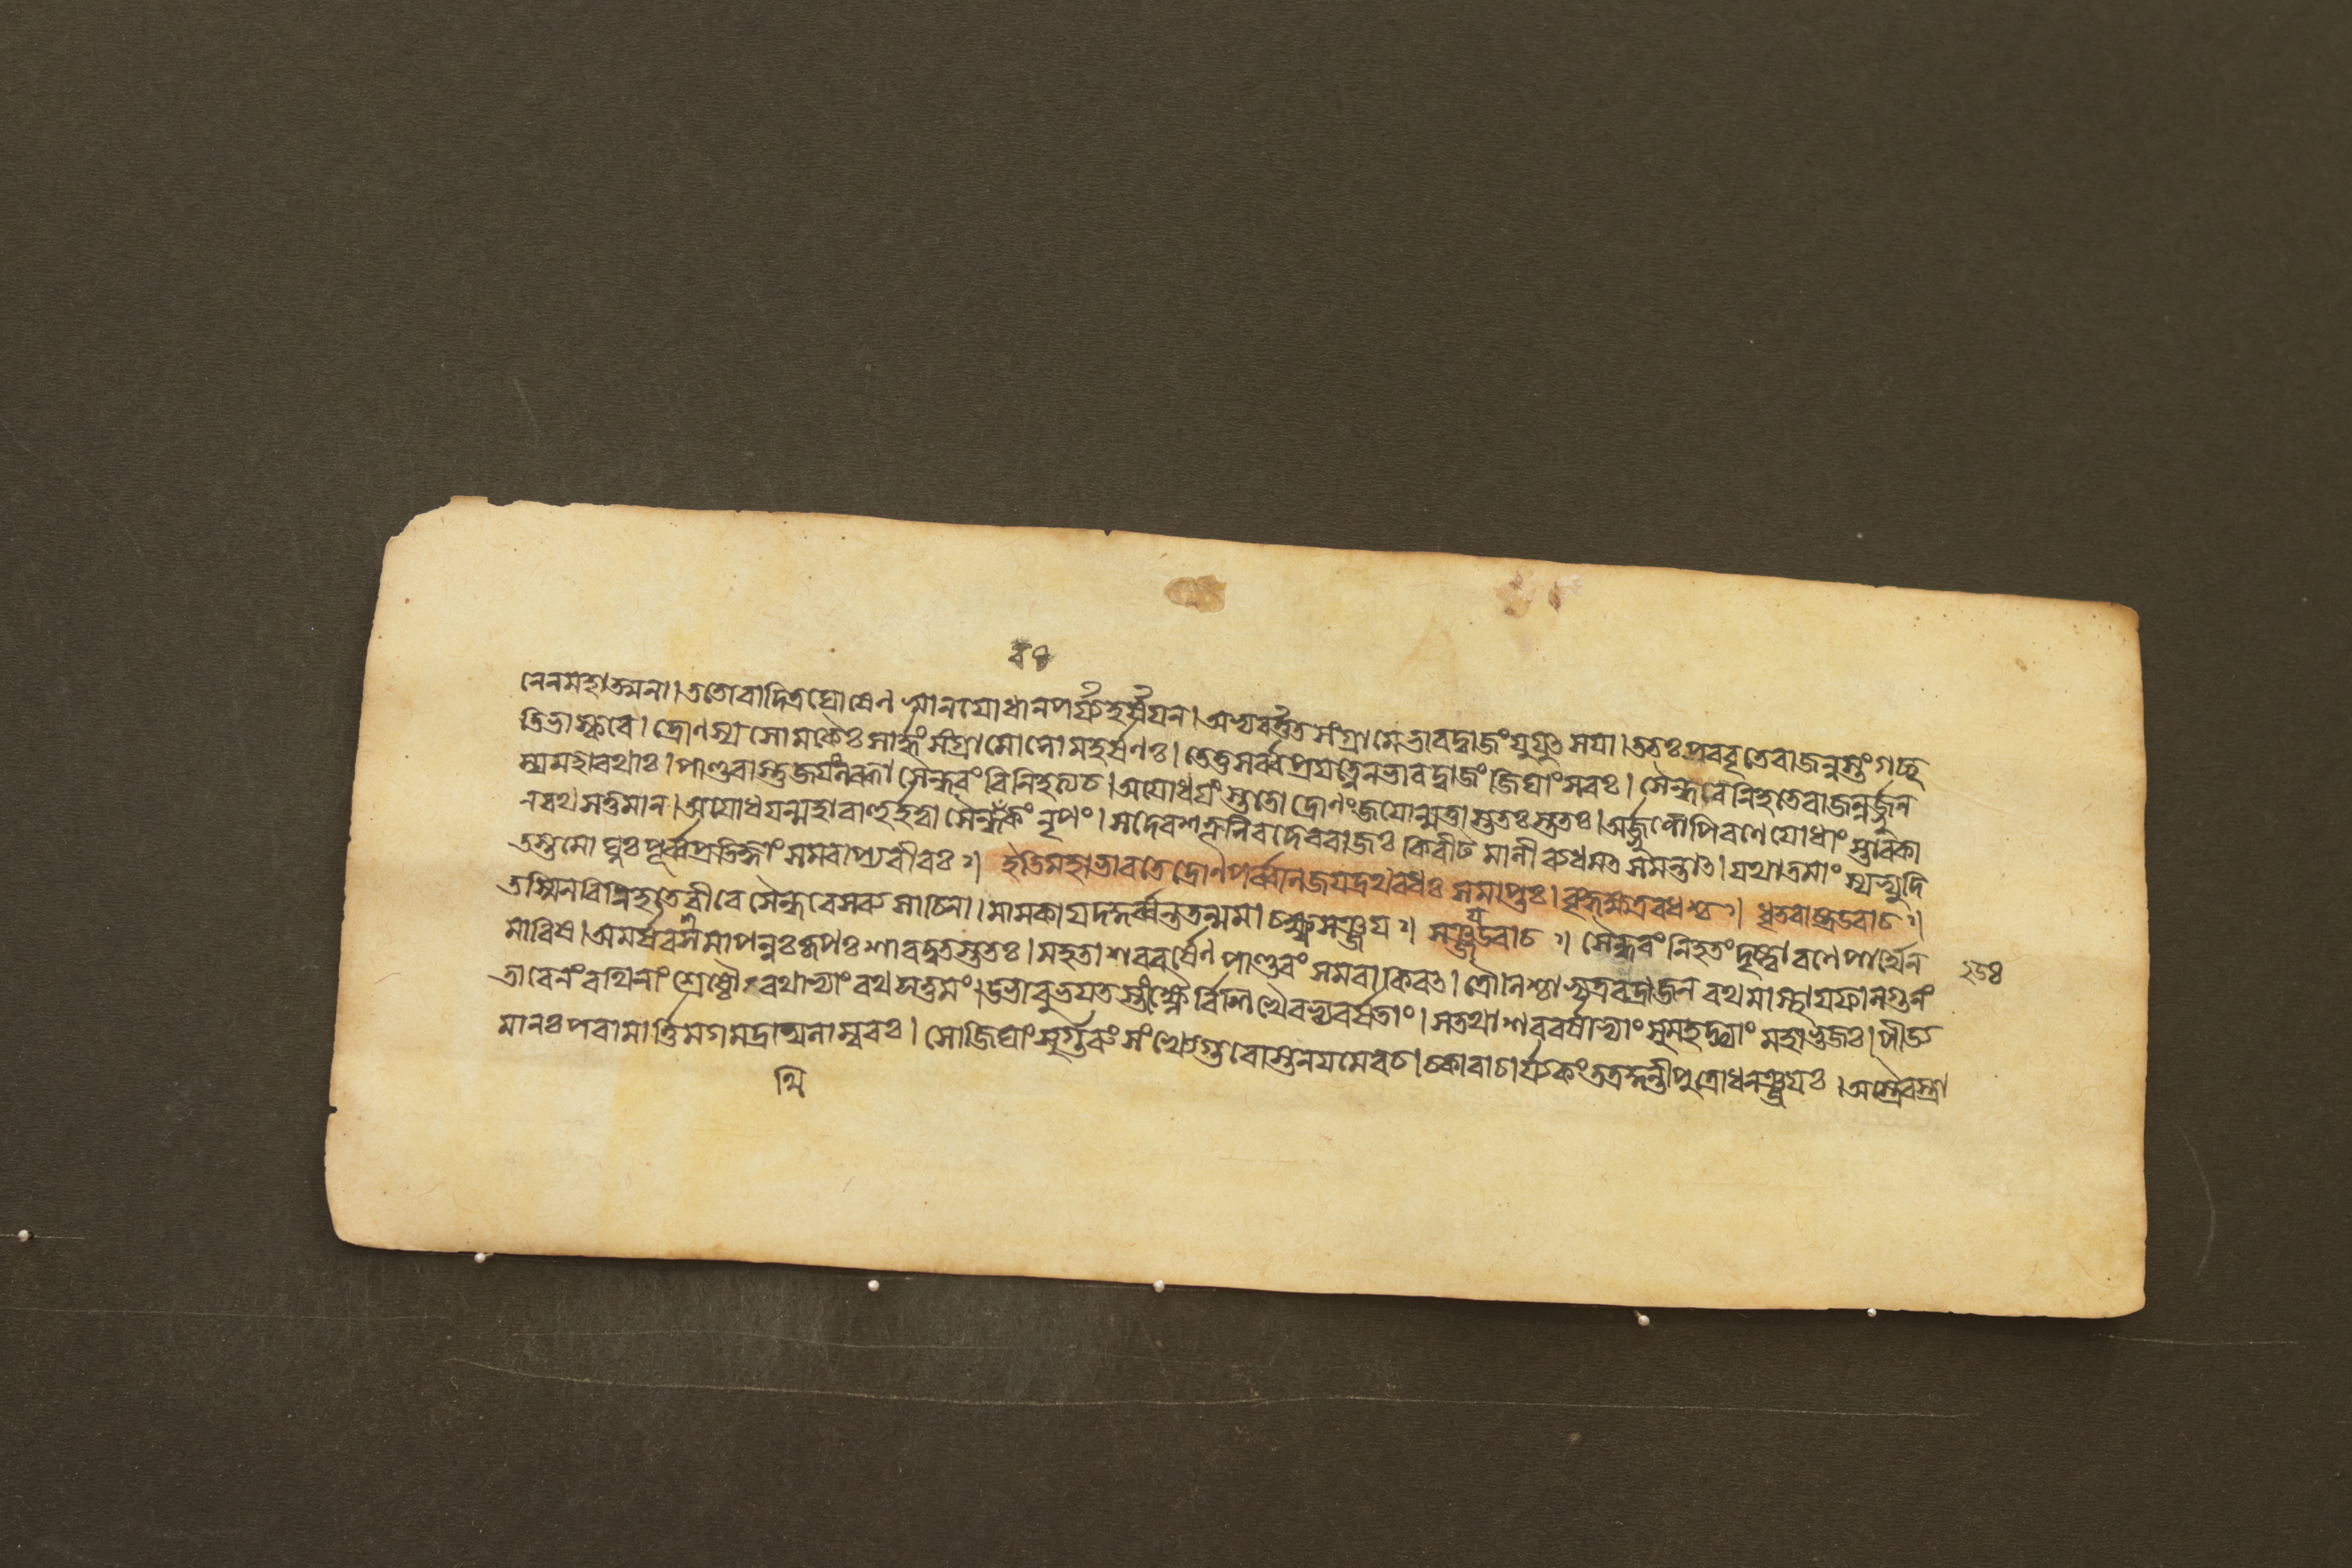 নেনমহাত্মনা। ততোবাদিত্রঘোষেণ স্বানযোধানপর্য্যহর্ষযন। অভ্যবর্ত্তত সংগ্রামেভারদ্বাজং যুযুৎসযা। ততঃ প্রববৃতেরাজন্নস্তং গচ্ছ
তিভাস্করে। দ্রোণস্য সোমকৈঃ সার্দ্ধং সংগ্রামোলোমহর্ষণঃ। তেতুসর্ব্বপ্রযত্নেনভারদ্বাজং জিঘাংসবঃ। সৈন্ধবেনিহতেরাজন্নর্জ্জুন
স্যমহারথাঃ। পাণ্ডবাস্তুজযংলব্ধা সৈন্ধবং বিনিহত্যচ। অযোধযংস্ততোদ্রোণংজযোন্মত্তাস্ততঃস্ততঃ। অর্জ্জুনোপিরণেযোধাংস্তাবকা
নরথসত্তমান। অযোধযন্মহাবাহুর্হত্বা সৈন্ধবকং নৃপং। সদেবশত্রূনিবদেবরাজঃ কিরীটমালীব্যধমত সমন্তাত। যথাতমাংস্যভ্যুদি
তস্তমোঘ্নঃ পূর্ব্বপ্রতিজ্ঞাং সমবাপ্যবীরঃ॥ ইতিমহাভারতেদ্রোণপর্ব্বনিজযদ্রথবধঃ সমাপ্তঃ। বৃদ্ধক্ষত্রবধশ্চ॥ ধৃতরাষ্ট্রউবাচ॥
তস্মিনবিনিহতেবীরে সৈন্ধবেসব্যসাচিনা। মামকাযদকুর্ব্বন্ততন্মমাচক্ষ্বসঞ্জয॥ সঞ্জযউবাচ॥ সৈন্ধবং নিহতংদৃষ্ট্বা রণেপার্থেন
মারিষ। অমর্ষবসমাপন্নঃ কৃপঃ শারদ্বতস্ততঃ। মহতাশরবর্ষেণ পাণ্ডবং সমবাকিরত। দ্রৌণিশ্চাভ্যদ্রবদ্রাজন রথমাস্থাযফাল্গুনং
তাবেনংরথিনাং শ্রেষ্ঠৌরথাভ্যাং রথসত্তমং। উভাবুভযতস্তীক্ষ্ণৈর্বিশিখৈরভ্যবর্ষতাং। সতথাশরবর্ষাভ্যাং সুমহদ্ভ্যাং মহাভুজঃ। পীড্য
মানঃ পরামার্ত্তিমগমদ্রথিনাম্বরঃ। সোজিঘাংসুর্গুরুং সংখ্যেগুরোস্তনযমেবচ। চকারাচার্য্যকংতত্রকুন্তীপুত্রোধনঞ্জযঃ। অস্ত্রৈরস্ত্রা